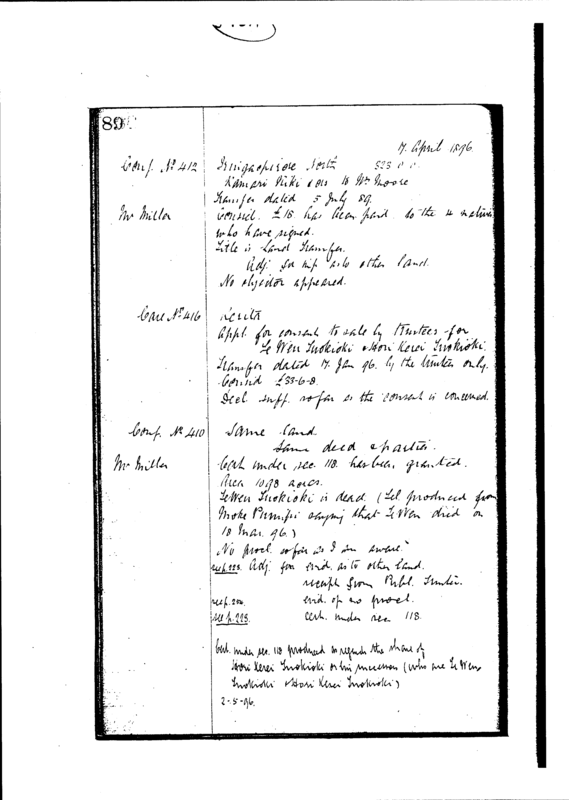 89
7 April 1896
Conf. No 412
North 523 0 0
Kamari & ors to Wm Moore
Transfer dated 5 July 89.
Mr Miller
Consid. £18 has been paid to the 4 natives
who have signed.
Title is Land Transfer.
Adj. for as to other land.
No objector appeared.
Case No 416
Appl. for consent to sale by Trustees for
Te Weu & Hori Kerei
Transfer dated 17 Jan 96. by the trustee only.
Consid £33-6-8.
Decl. suff. so far as the consent is concerned.
Conf. No 410
Same land
Same deed & parties.
Mr Miller
Cert. under sec. 118. has been granted.
Area 1098 acres.
Te Weu is dead (Tel. produced from
saying that Te Weu died on
18 Mar. 96.)
"No procl. so far as I am aware."
see p. 223. Adj. for evid. as to other land.
receipt from Publ. Trustee.
see p. evid. of no procl.
see p. 223. cert. under sec 118.
Cert. under sec. 118 produced as regards the share of
Hori Kerei or his successors (who are Te Weu
& Hori Kerei )
2-5-96.